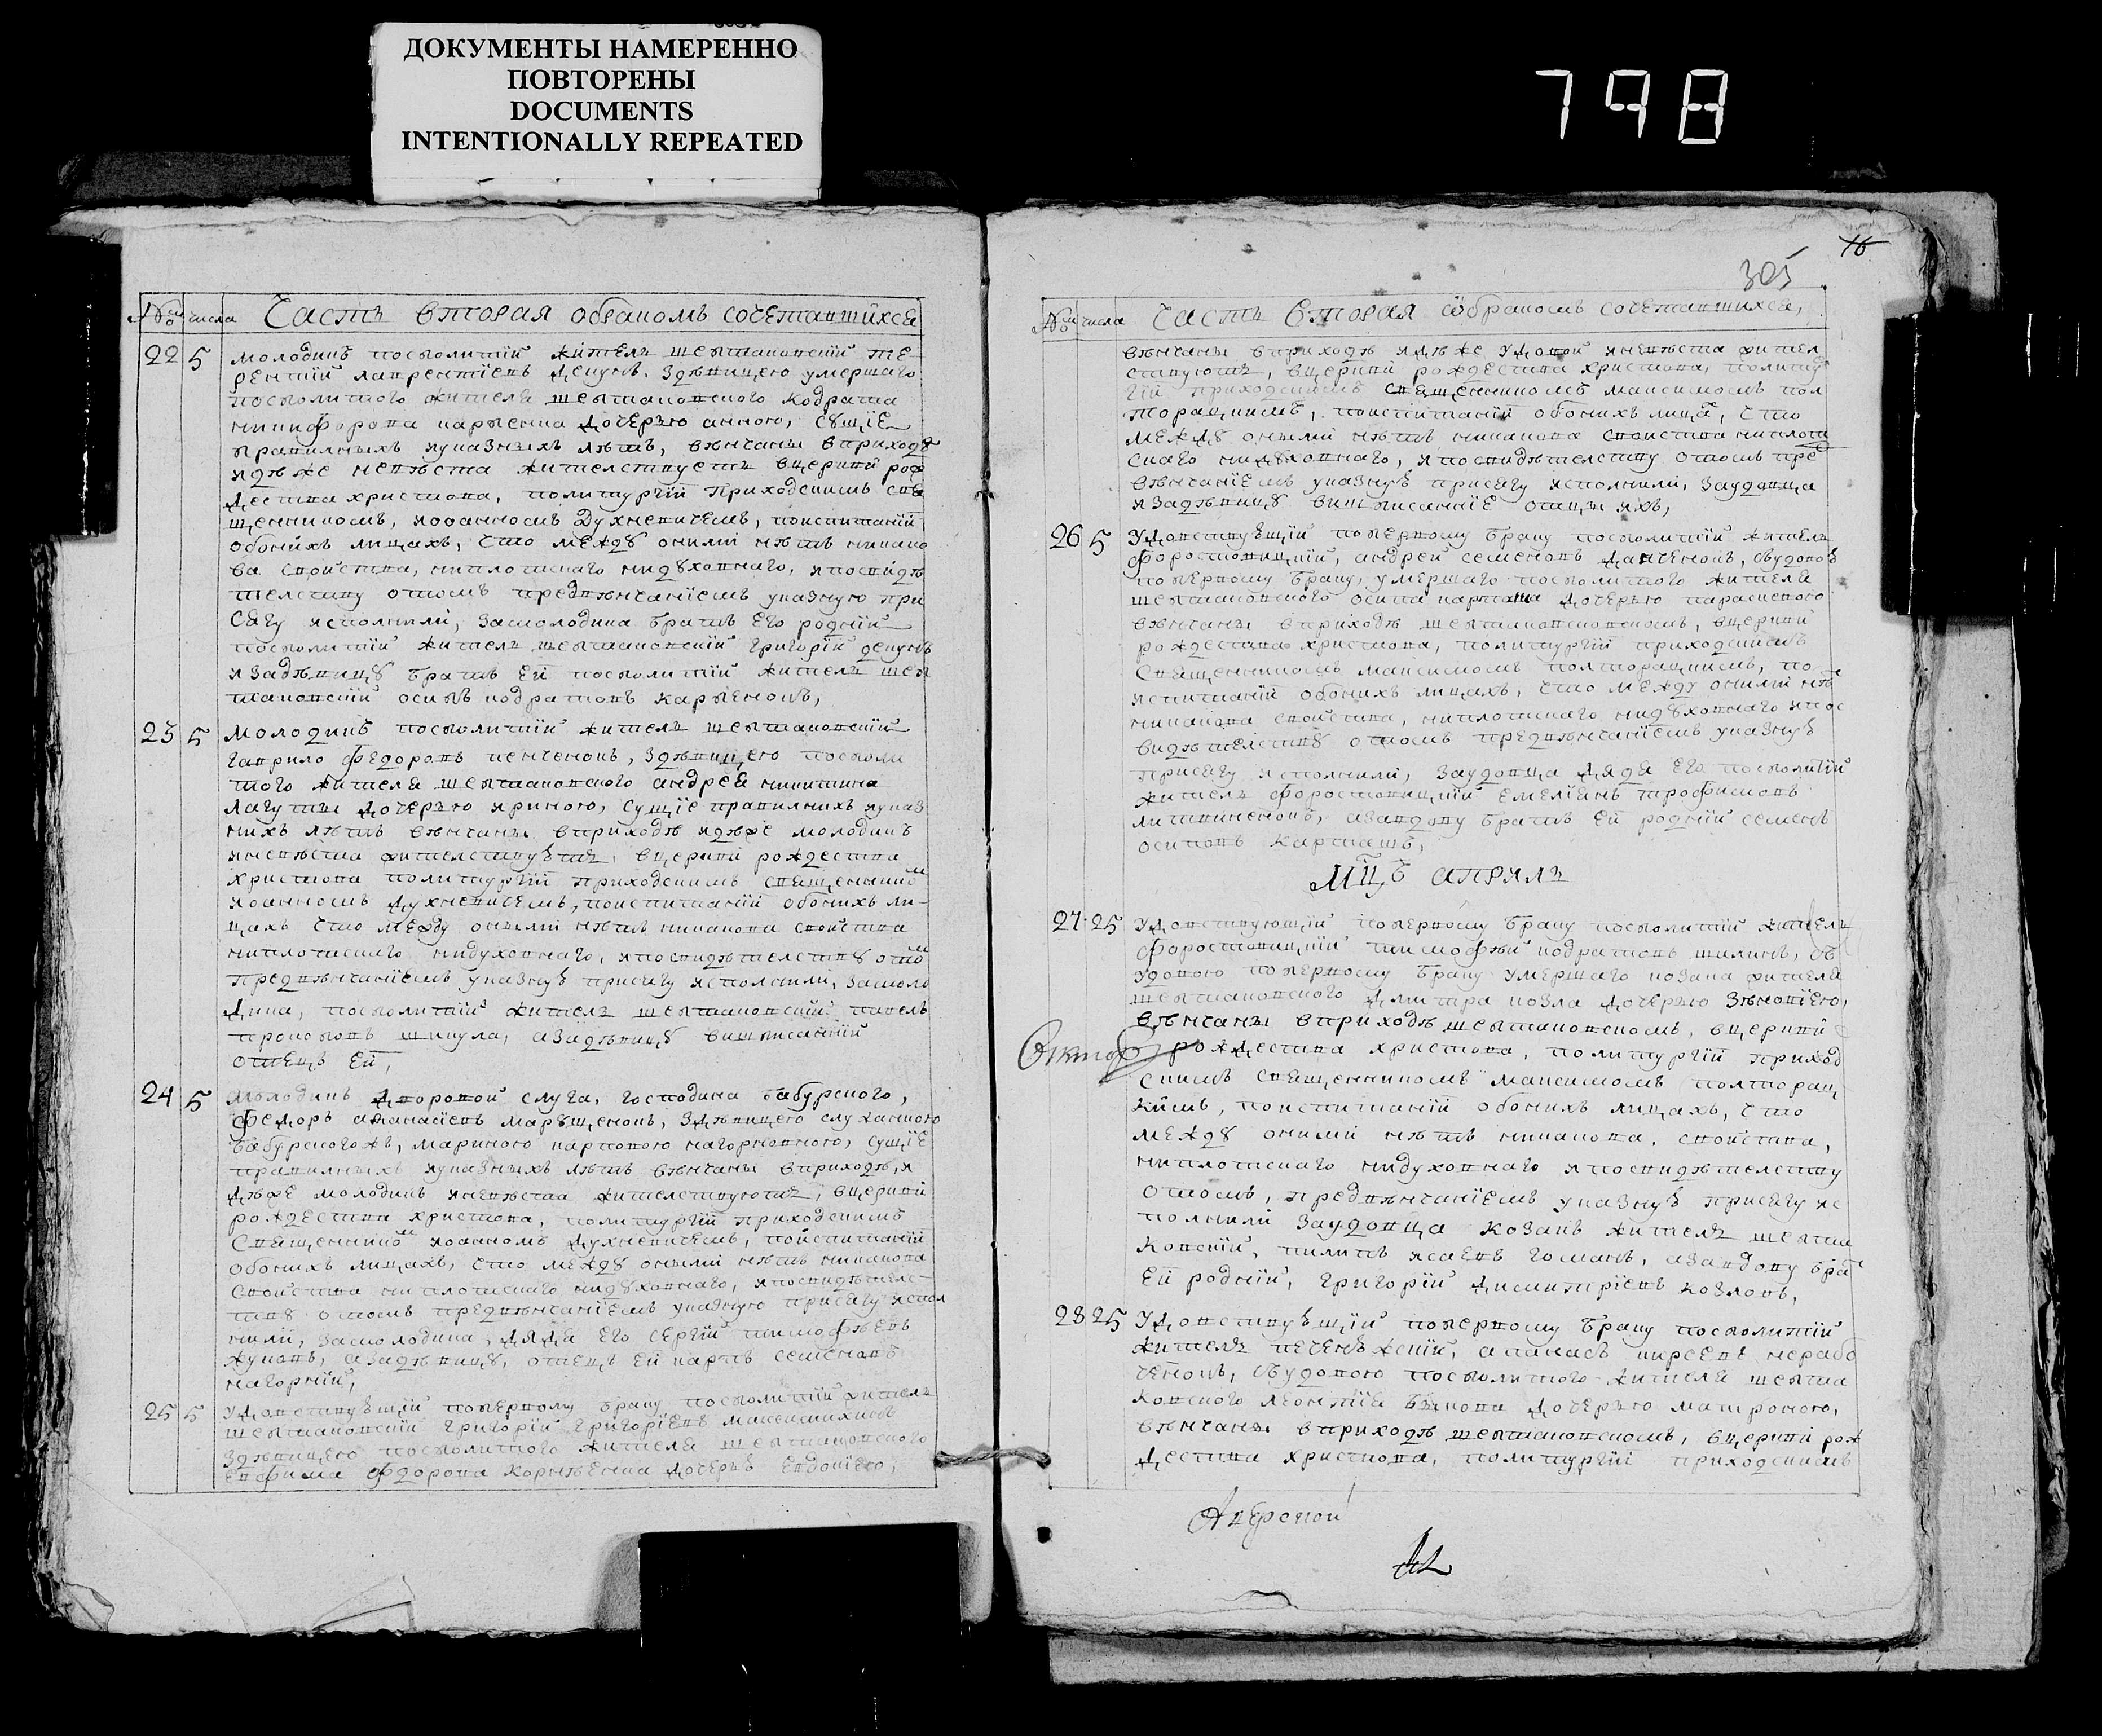 ДОКУМЕНТЫ НАМЕРЕННО
ПОВТОРЕНЫ
DOCUMENTS
INTENTIONALLY REPEATED
798
16
305
№ числа Часть вторая обракомъ сочетавшихся
22 5 молодикъ посполитїй жителъ шептаковскїй те
рентїй лаврентїевъ децукъ, здѣвицею умершаго
посполитого жителя шептаковского кодрата
никифорова карпенка дочерью анною, сущїе
правилныхъ иуказныхъ лѣтъ, вѣнчаны вприходѣ
идѣже невѣста жителствуетъ вцеркви рож
дества христова, политургїи приходскимъ свя
щенникомъ, иоанномъ духневичемъ, поиспитанїи
обоихъ лицахъ, что между оними нѣтъ никако
ва свойства, ниплотскаго нидуховнаго, ипосвидѣ
телству отомъ предвѣнчанїемъ указную при
сягу исполнили, замолодика братъ его роднїй
посполитїй жителъ шептаковскїй григорїй децукъ
изадѣвицу братъ ей посполитїй жителъ шеп
таковскїй осипъ кодратовъ карпенокъ,
23 5 Молодикъ посполитїй жителъ шептаковскїй
гаврило федоровъ пенченокъ, здѣвицею посполи
того жителя шептаковского андрея никитина
лагуты дочерью ириною, сущїе правилнихъ иуказ
нихъ лѣтъ вѣнчаны вприходѣ идѣже молодикъ
иневѣста жителствуютъ, вцеркви рождества
христова политургїи приходскимъ священником
иоанномъ духневичемъ, поиспитанїи обоихъ ли-
цахъ что между оными нѣтъ никакова свойства
ниплотскаго нидуховнаго, ипосвидѣтелству отом
предвѣнчанїемъ указную присягу исполнили, замоло
дика, посполитїй жителъ шептаковскїй павелъ
прокоповъ шикула, азадѣвицу вишписаннїй
отецъ ей,
24 5 Молодикъ дворовой слуга, господина бабурского,
федоръ афанасїевъ марущенокъ, здѣвицею служанкою
бабурскогожъ, мариною карповою нагорновною, сущїе
правилныхъ иуказныхъ лѣтъ вѣнчаны вприходѣ, и
дѣже молодикъ иневѣста жителствуютъ, вцеркви
рождества христова, политургїи приходскимъ
священником иоанномъ духневичемъ, поиспитанїи
обоихъ лицахъ, что между оными нѣтъ никакова
свойства ниплотскаго нидуховнаго, ипосвидѣтелс-
тву отомъ предвѣнчанїемъ указную присягу испол
нили, замолодика, дядя его сергїй тимофѣевъ
жуковъ, азадѣвицу, отецъ ей карпъ семеновъ
нагорнїй,
25 5 Удовствующїй поперному браку посполитїй жителъ
шептаковскїй григорїй григорїевъ максимихинъ
здѣвицею посполитого жителя шептаковского
евфима федорова корнѣенка дочерью евдокїею,
№ числа Часть вторая обракомъ сочетавшихся,
вѣнчаны вприходѣ идѣже удовой иневѣста жител
ствуютъ, вцеркви рождества христова, политур
гїи приходскимъ священникомъ максимомъ пол
торацкимъ, поиспитанїи обоихъ лицъ, что
между оными нѣтъ никакова свойства ниплотс
скаго нидуховнаго, ипосвидѣтелству отомъ пре
вѣнчанїемъ указную присягу исполнили, заудовца
изадѣвицу вишписаннїе отцы ихъ,
26 5 Удовствующїй попервому браку посполитїй жителъ
форостовицкїй, андрей семеновъ данченокъ, свудовою
попервому браку, умершаго посполитого жителя
шептаковского осипа карташа дочерью параскевою
вѣнчаны вприходѣ шептаковскомъ, вцеркви
рождества христова, политургїи приходскимъ
священникомъ максимомъ полторацкимъ, по
испитанїи обоихъ лицахъ, что между оними нѣт
никакова свойства, ниплотскаго нидуховнаго ипос
видѣтелству отомъ предвѣнчанїемъ указную
присягу исполнили, заудовца дядя его посполитїй
жителъ форостовицкїй емелїянъ трофимовъ
литвиненокъ, азавдову братъ ей роднїй семенъ
осиповъ карташъ,
Мцъ априль
27 25 Удовствующїй попервому браку посполитїй жителъ
форостовицкїй тимофѣй кодратовъ шиликъ, съ
удовою попервому браку умершаго козака жителя
шептаковского дмитра козла дочерью зѣновїею,
вѣнчаны вприходѣ шептаковскомъ, вцеркви
рождества христова, политургїи приход
скимъ священникомъ максимомъ полторац
кимъ, поиспитанїи обоихъ лицахъ, что
между оними нѣтъ никакова, свойства,
ниплотскаго нидуховнаго ипосвидѣтелству
отомъ, предвѣнчанїемъ указную присягу ис
полнили заудовца козакъ жителъ шепта
ковскїй, пилипъ исаевъ гоманъ, азавдову бра
ей роднїй, григорїй димитрїевъ козловъ,
28 25 Удовствующїй попервому браку посполитїй
жителъ печенѣжскїй, апанасъ кирѣевъ
ченокъ, свудовою посполитого жителя шепта
ковского леонтїя бикова дочерью матроною,
вѣнчаны вприходѣ шептаковскомъ, вцеркви рож
дества христова, политургїи приходскимъ